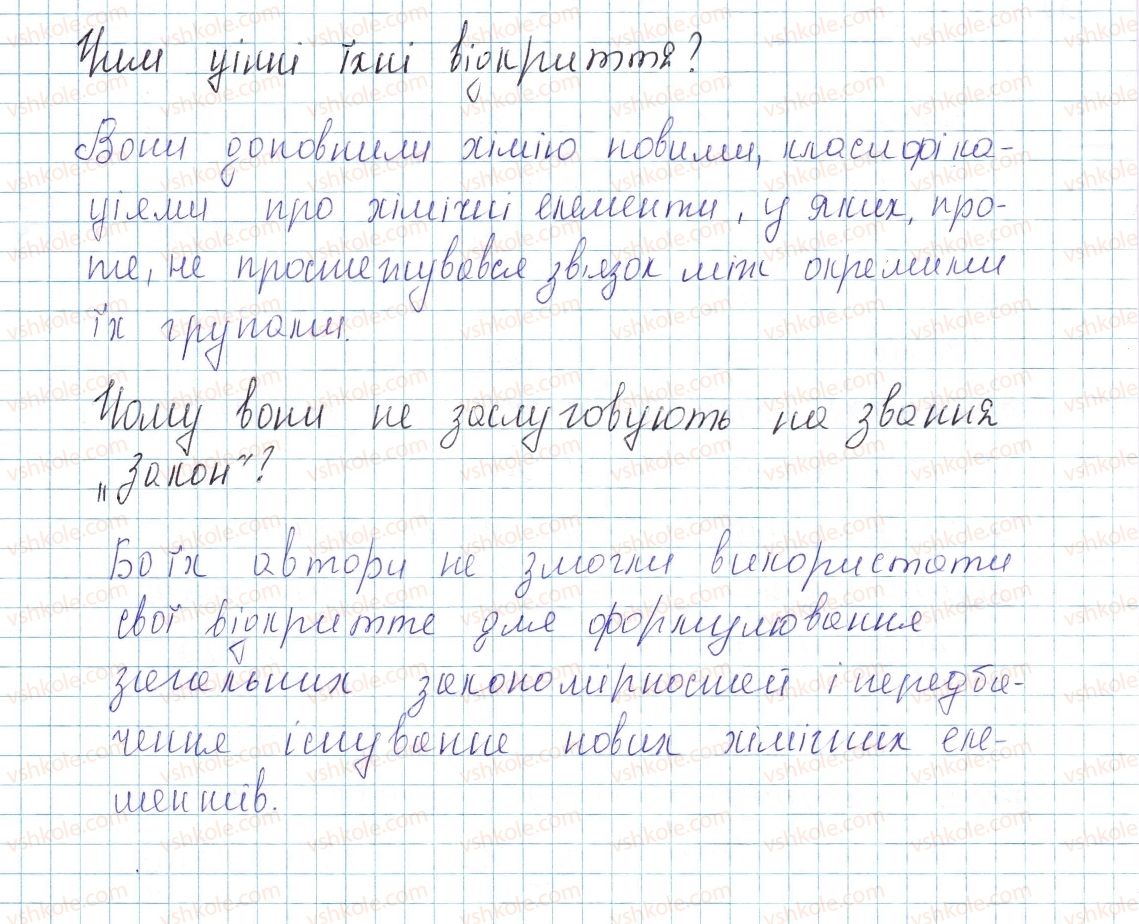 Чим цінні їхні відкриття?
Вони доповнили хімію новими, класифіка-
ціями про хімічні елементи, у яких, про-
те, не простежувався зв'язок між окремими
їх групами.
Чому вони не заслуговують на звання
„Закон"?
Бо їх автори не змогли використати
свої відкриття для формулювання
загальних закономірностей і передба-
чення існування нових хімічних еле-
ментів.